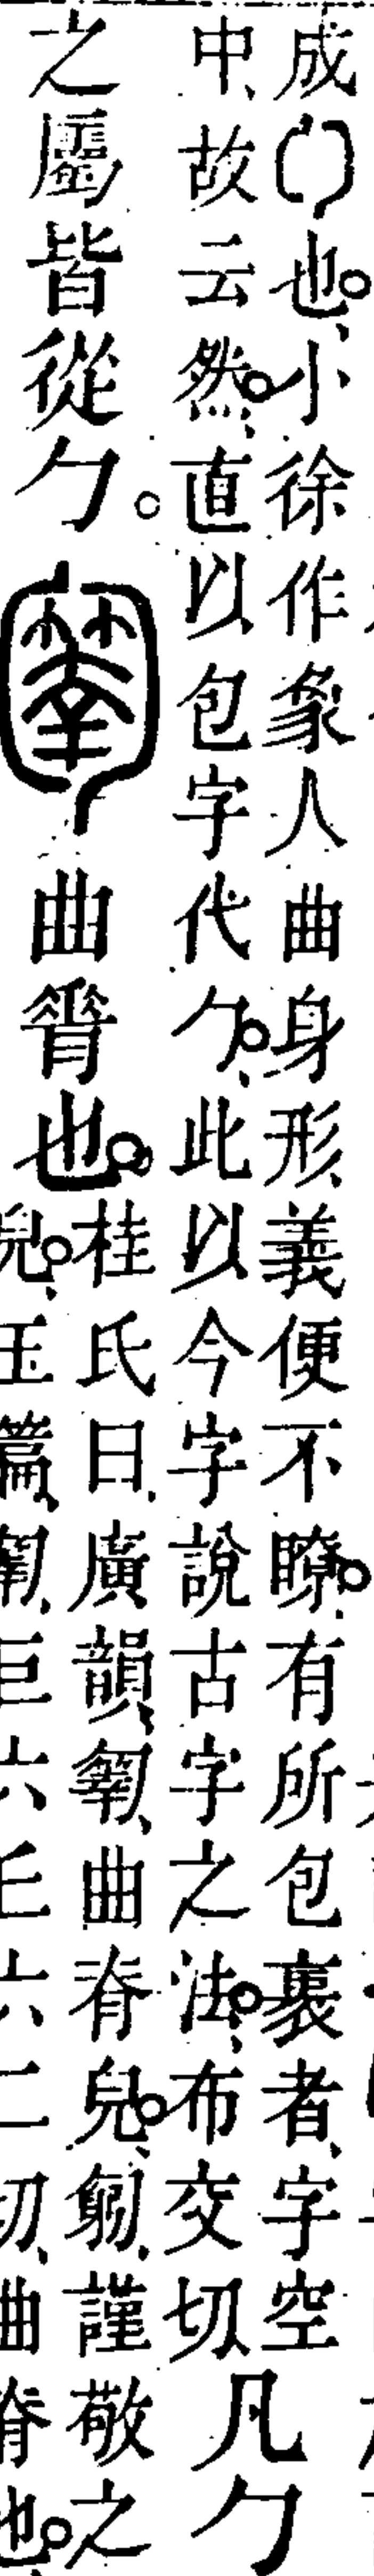 成勹也。小徐作象人曲身形、義便不瞭。有所包裹者、字空
中、故云然。直以包字代勹。此以今字說古字之法。布交切、
凡勹
之屬皆從勹。曲脊也。
桂氏曰、廣韻、曲脊皃。匔、謹敬之
皃。玉篇、巨六丘六二切、曲脊也。